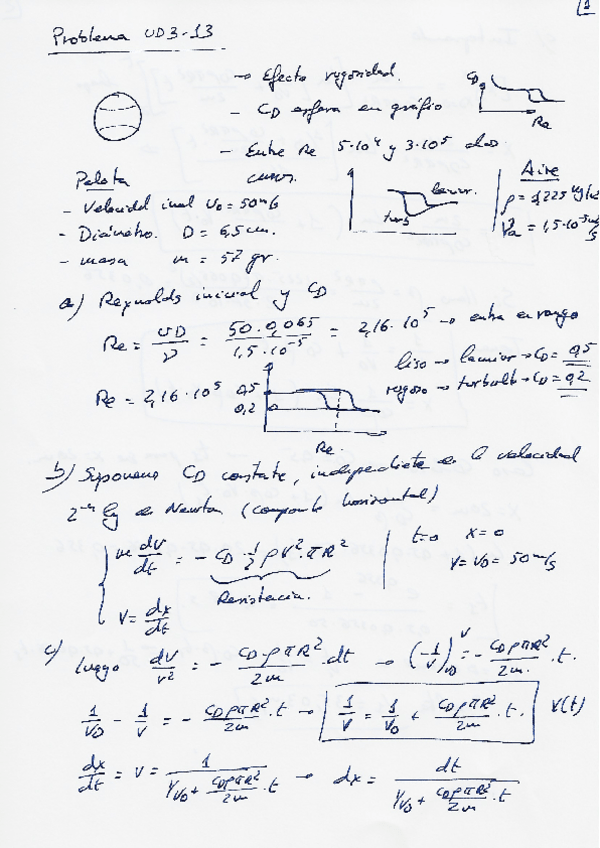 1
Problema UD3-13
→ Efecto rugosidad.
- CD esfera en gráfico
- Entre Re 5·10⁴ y 3·10⁵ dos
curvas.
CD
Re
Pelota
- Velocidad inicial U₀ = 50 m/s
- Diámetro. D = 6,5 cm.
- masa m = 57 gr.
laminar.
turb
Aire
ρ = 1,225 kg/m
νa = 1,5·10⁻⁵ m/s
a) Reynolds inicial y CD
Re = UD/ν = 50·0,065/1,5·10⁻⁵ = 2,16·10⁵ → entra en rango
liso → laminar → CD = 0,5
rugoso → turbul → CD = 0,2
Re = 2,16·10⁵
0,5
0,2
Re
b) Suponemos CD constante, independiente de la velocidad
2ª ley de Newton (componente horizontal)
m dV/dt = - CD · 1/2 ρV²·πR²
Resistencia.
V = dx/dt
t=0 x=0
V=V₀= 50 m/s
c) luego dV/V² = - CD·ρπR²/2m · dt → (-1/V)ᵛᵥ₀ = - CDρπR²/2m · t.
1/V₀ - 1/V = - CDρπR²/2m · t → 1/V = 1/V₀ + CDρπR²/2m · t. V(t)
dx/dt = V = 1/(1/V₀ + CDρπR²/2m · t) → dx = dt/(1/V₀ + CDρπR²/2m · t)